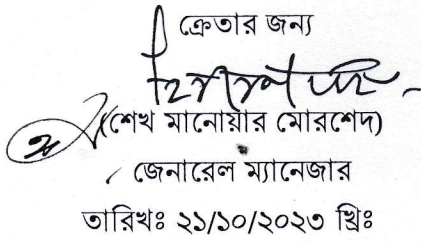 ক্রেতার জন্য
(শেখ মানোয়ার মোরশেদ)
জেনারেল ম্যানেজার
তারিখঃ ২১/১০/২০২৩ খ্রিঃ